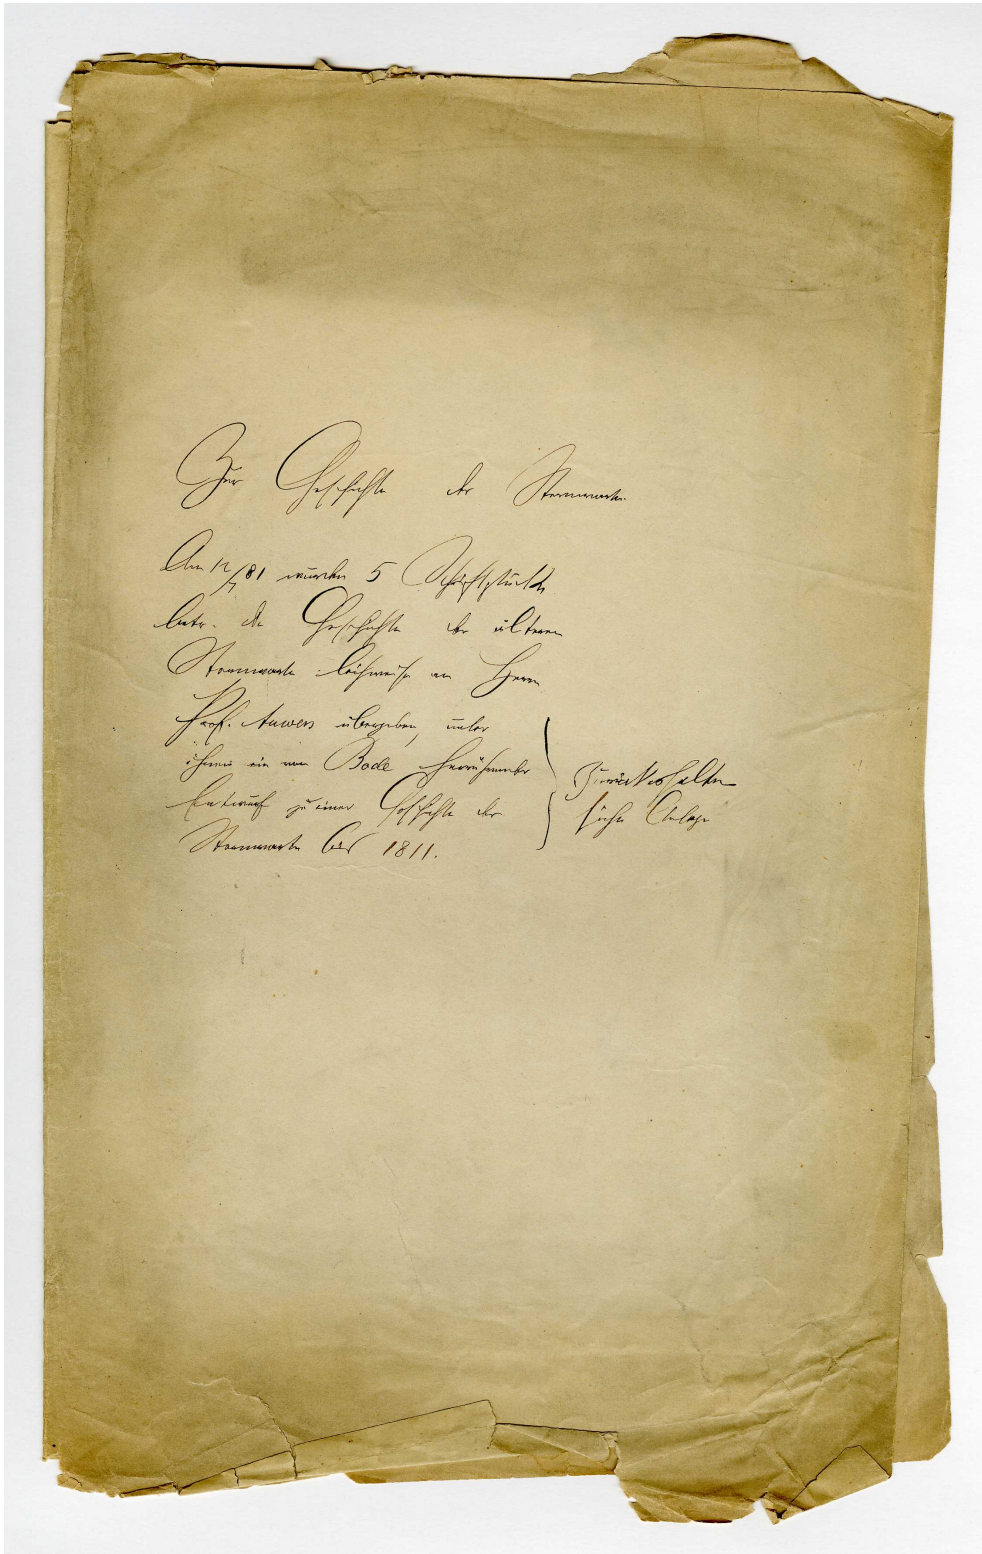 Zur Geschichte der Sternwarte
Am 12/7 81 wurden 5 Schriftstücke
betr. die Geschichte der älteren
Sternwarte leihweise an Herrn
Prof. Auwers übergeben, unter
ihnen ein von Bode herrührender
Entwurf zu einer Geschichte der
Sternwarte bis 1811.
Zurückerhalten
siehe Anlage